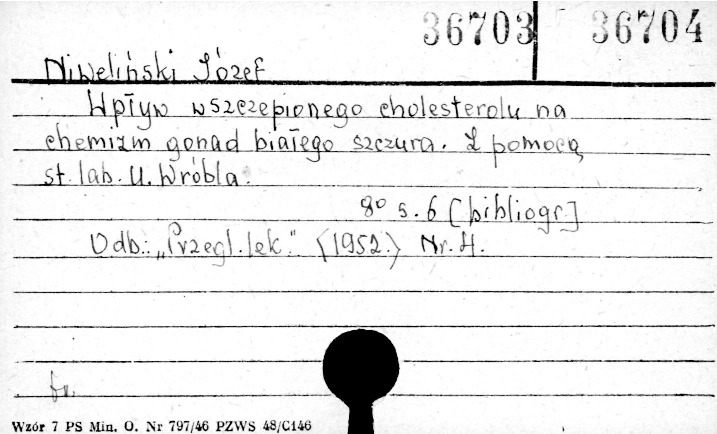 36703 36704
Niweliński Józef
Wpływ wszczepionego cholesterolu na
chemizm gonad białego szczura. Z pomocą
st. lab. U. Wróbla.
8° s. 6 [bibliogr.]
Odb.: „Przegl. lek." (1952.) Nr. 4.
Wzór 7 PS Min. O. Nr 797/46 PZWS 48/C146